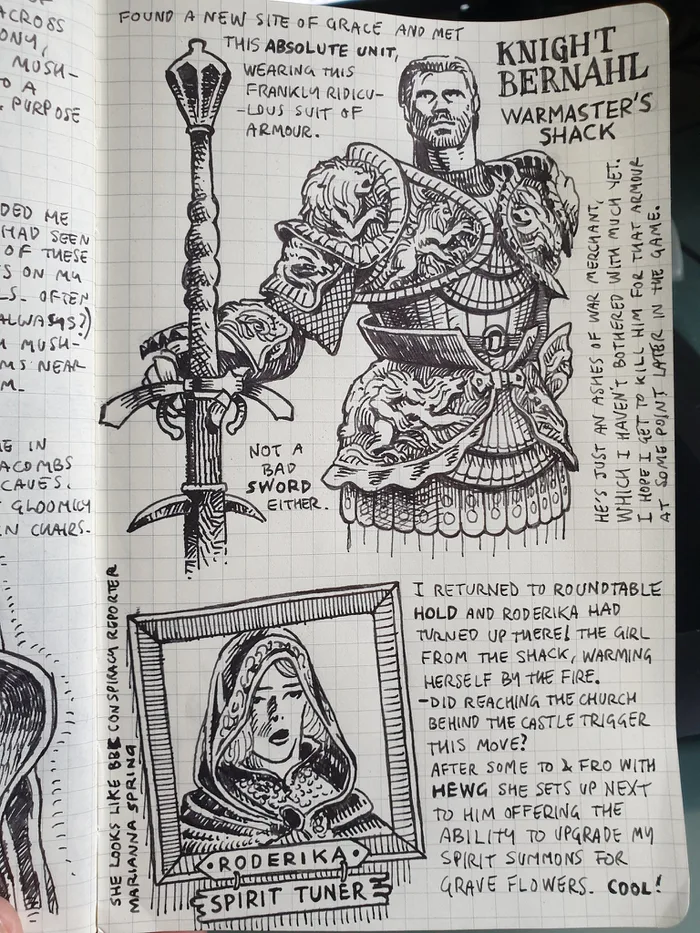 ACROSS
ONY,
MUSH-
TO A
PURPOSE
DED ME
HAD SEEN
OF THESE
S ON MY
LS. OFTEN
ALWAYS?)
MUSH-
MS NEAR
M.
E IN
ACOMBS
CAVES.
GLOOMILY
N CHAIRS.
FOUND A NEW SITE OF GRACE AND MET
THIS ABSOLUTE UNIT,
WEARING THIS
FRANKLY RIDICU-
-LOUS SUIT OF
ARMOUR.
KNIGHT
BERNAHL
WARMASTER'S
SHACK
HE'S JUST AN ASHES OF WAR MERCHANT,
WHICH I HAVEN'T BOTHERED WITH MUCH YET.
I HOPE I GET TO KILL HIM FOR THAT ARMOUR
AT SOME POINT LATER IN THE GAME.
NOT A
BAD
SWORD
EITHER.
SHE LOOKS LIKE BBC CONSPIRACY REPORTER
MARIANNA SPRING
RODERIKA
SPIRIT TUNER
I RETURNED TO ROUNDTABLE
HOLD AND RODERIKA HAD
TURNED UP THERE! THE GIRL
FROM THE SHACK, WARMING
HERSELF BY THE FIRE.
-DID REACHING THE CHURCH
BEHIND THE CASTLE TRIGGER
THIS MOVE?
AFTER SOME TO & FRO WITH
HEWG SHE SETS UP NEXT
TO HIM OFFERING THE
ABILITY TO UPGRADE MY
SPIRIT SUMMONS FOR
GRAVE FLOWERS. COOL!